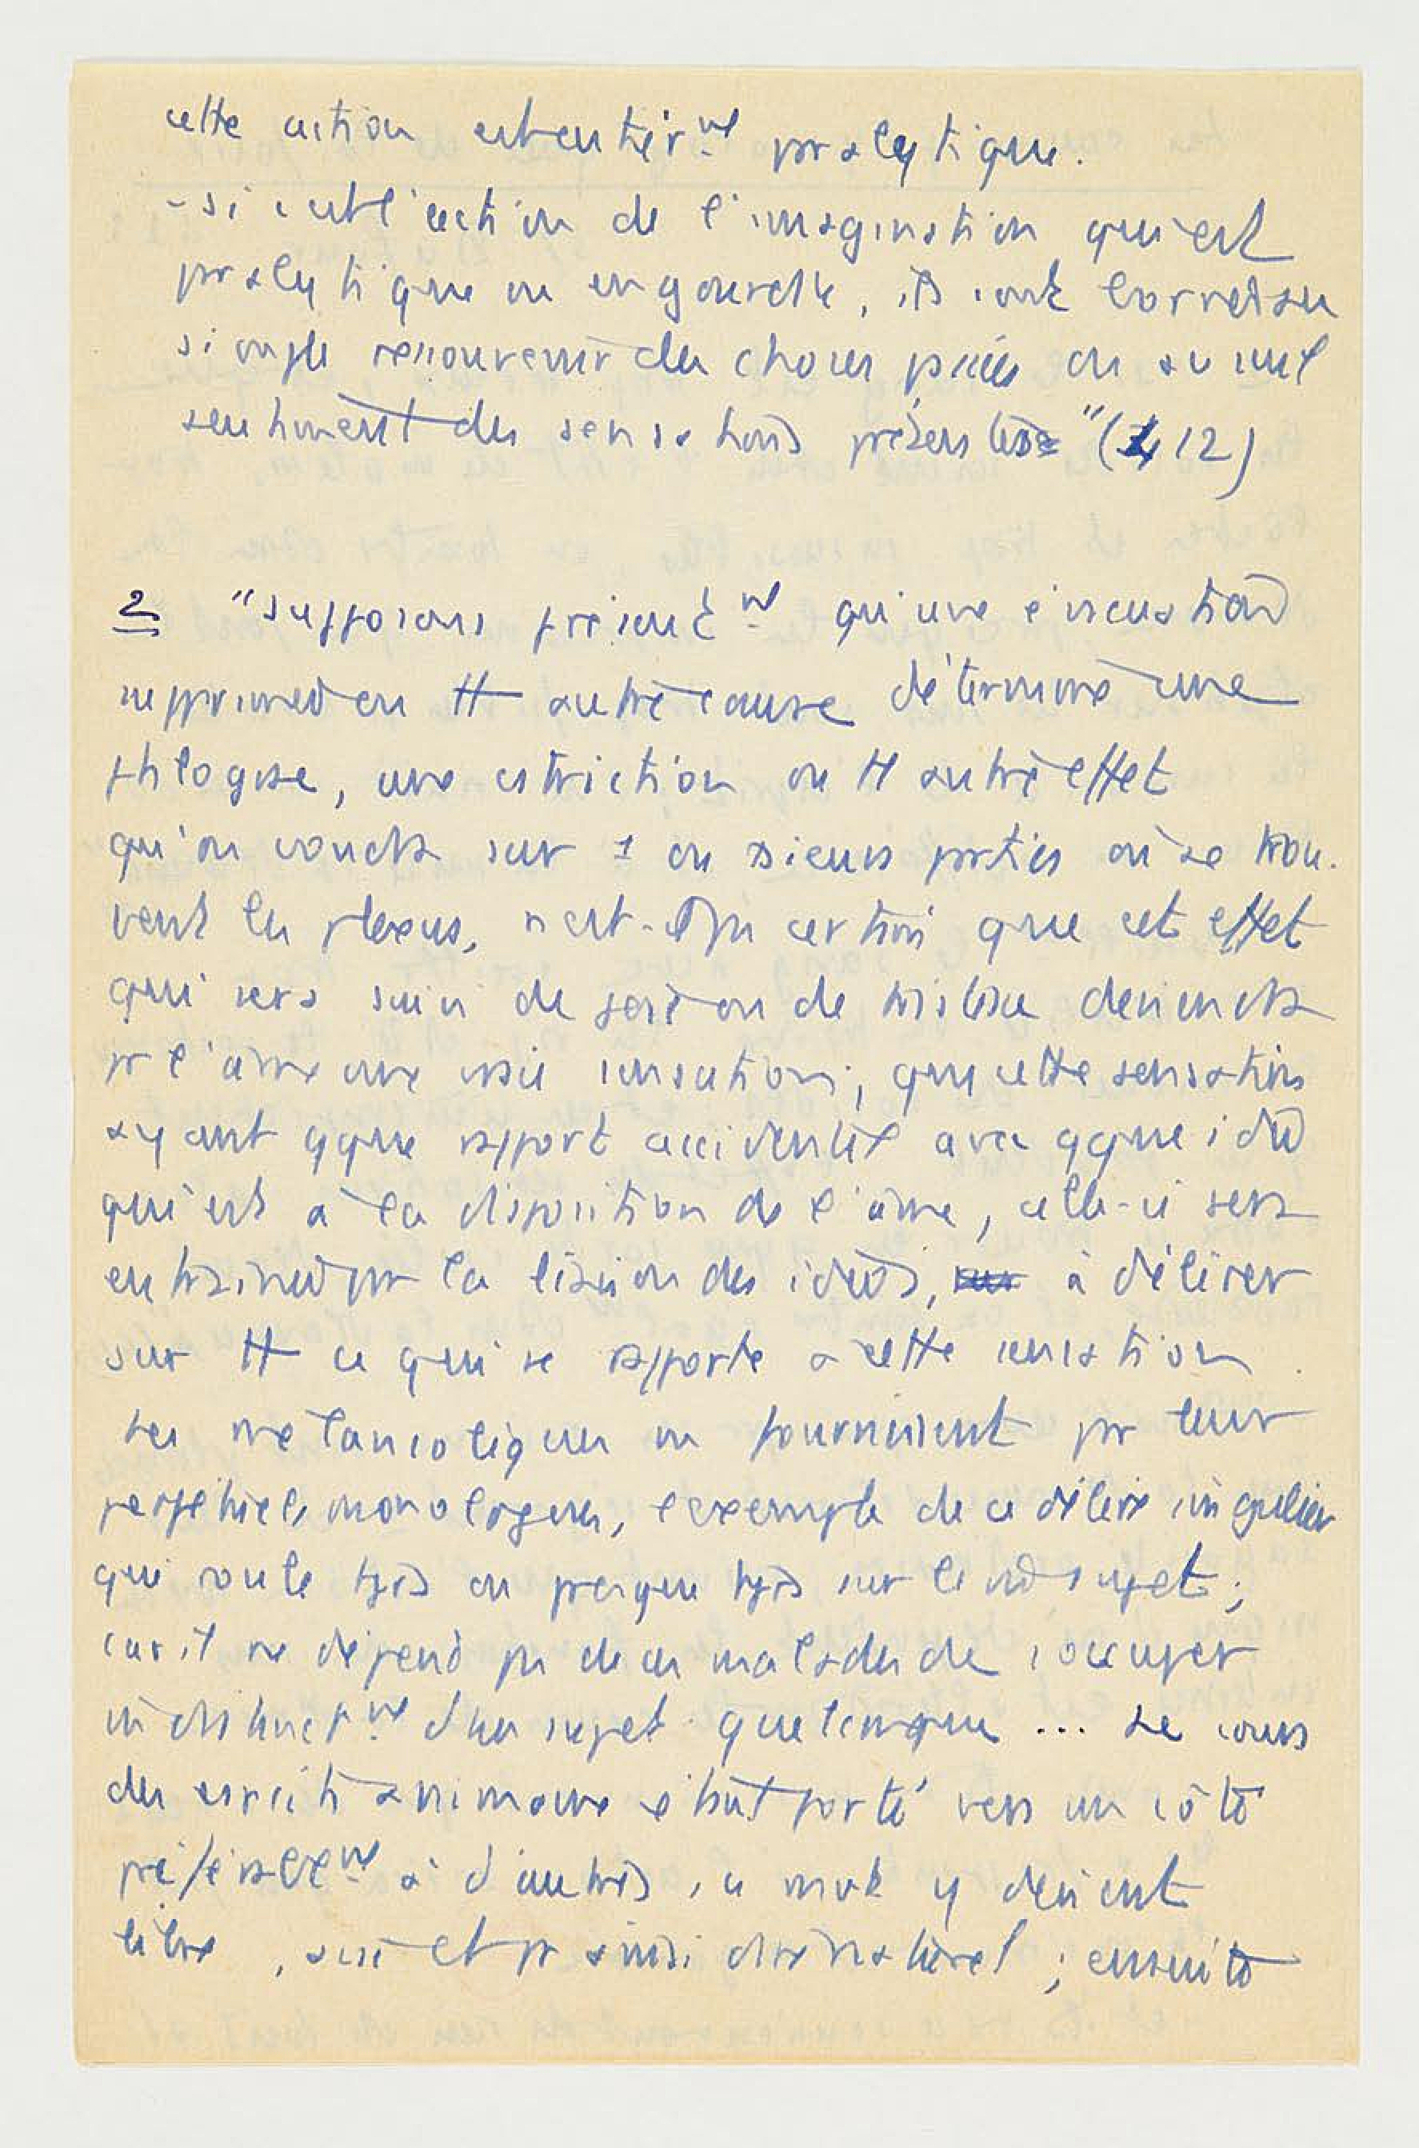 cette action est entièrmt paralytique.
- si c'est l'action de l'imagination qui est
paralytique ou engourdie, ils sont bornés au
simple ressouvenir des choses passées ou au seul
sentiment des sensations présentes" (412)
2 "supposons présentmt qu'une évacuation
supprimée ou tt autre cause détermine une
phlogose, une astriction ou tt autre effet
qu'on voudra sur 1 ou plsieurs parties où se trou-
vent les plexus, n'est-il pas certain que cet effet
qui sera suivi de gaîté ou de tristesse deviendra
pr l'âme une vraie sensation; que cette sensation
ayant qque rapport accidentel avec qque idée
qui est à la disposition de l'âme, celle-ci sera
entraînée par la liaison des idées, à délirer
sur tt ce qui se rapporte à cette sensation.
Les mélancoliques ns fournissent par leurs
perpétuels monologues, l'exemple de ce délire singulier
qui roule tjrs ou presque tjrs sur le mê sujet;
car il ne dépend pas de ces malades de s'occuper
indistinctmt d'un sujet quelconque ... Le cours
des esprits animaux étant porté vers un côté
préférablemt à d'autres, ce mvt y devient
libre, aisé et pr ainsi dire naturel; ensuite